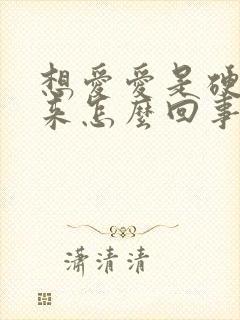 想愛愛是硬
來怎麼回事
瀟清清